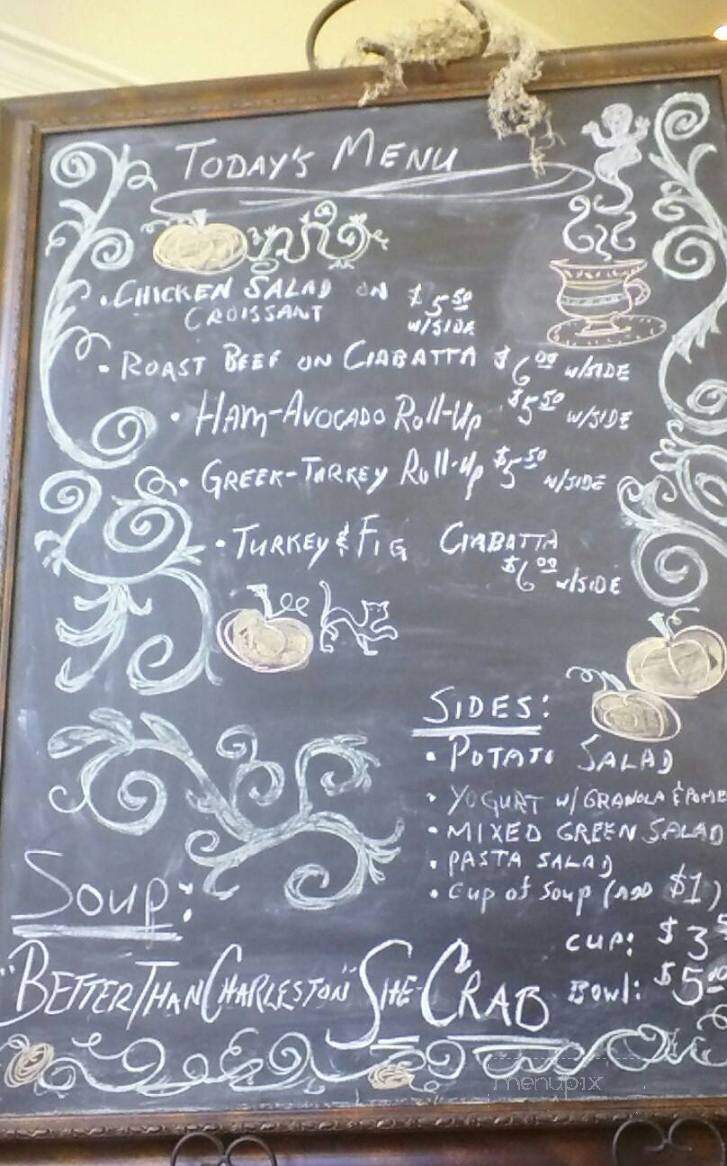 TODAY'S MENU
• CHICKEN SALAD ON $5.50
CROISSANT W/SIDE
• ROAST BEEF ON CIABATTA $6.00 W/SIDE
• HAM-AVOCADO Roll-Up $5.50 W/SIDE
• GREEK-TURKEY Roll-Up $5.50 W/SIDE
• TURKEY & FIG CIABATTA
$6.00 W/SIDE
SIDES:
• POTATO SALAD
• YOGURT W/ GRANOLA & POME
• MIXED GREEN SALAD
• PASTA SALAD
• Cup of Soup (ADD $1)
Soup:
CUP: $3.5
"BETTER THAN CHARLESTON" SHE-CRAB Bowl: $5.00
menupix